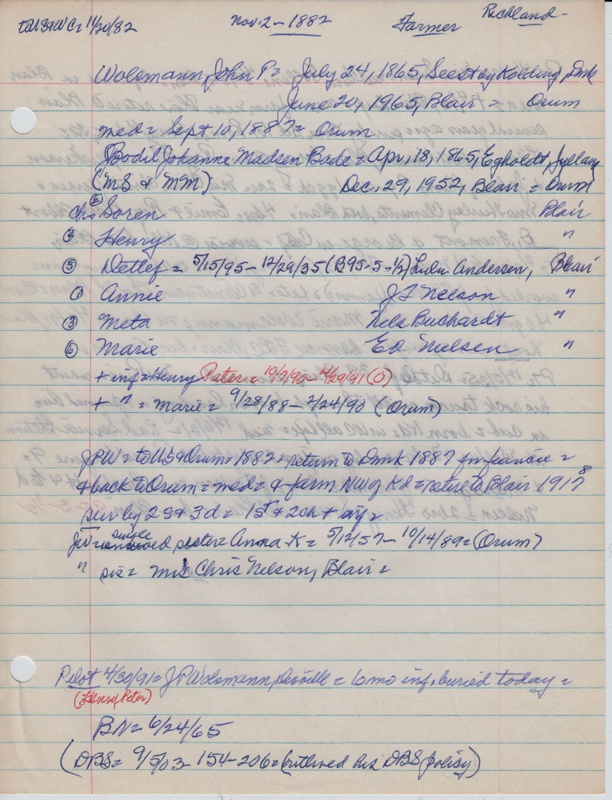 to US & WC = 11/20/82 Nov-2-1882 Farmer Richland-
Wolsmann, John P = July 24, 1865, Seest by Kolding, Dmk
June 20, 1965, Blair = Orum
med = Sept 10, 1887 = Orum
Bodil Johanne Madsen Bade = Apr, 18, 1865, Egholdt, Jylland
(MS & MM) Dec, 29, 1952, Blair = Orum
Soren Blair
④ Henry "
⑤ Detlef = 5/15/95 - 12/29/35 (B95-5-½) Lulu Andersen, Blair
① Annie J F Nelson "
③ Meta Nels Buchardt "
⑥ Marie Ed Nielsen "
+ inf = Henry Peter = 10/9/90 - 4/29/91 (O)
+ " = Marie = 9/28/88 - 2/24/90 (Orum)
JPW = to US & Orum = 1882 = return to Dmk 1887 for fiancée =
& back to Orum = med = & farm NW of Kd = retire to Blair 1917 8
surv by 2s & 3d = 1st & 2ch + ay =
single
sister = Anna K = 5/12/57 - 10/14/89 = (Orum)
" sis = Mrs Chris Nelson, Blair =
Pilot 4/30/91 = J P Wolsmann, = 6 mo inf. buried today =
(Henry Peter)
BN = 6/24/65
(DBS = 9/5/03 - 154-206 = his DBS policy)